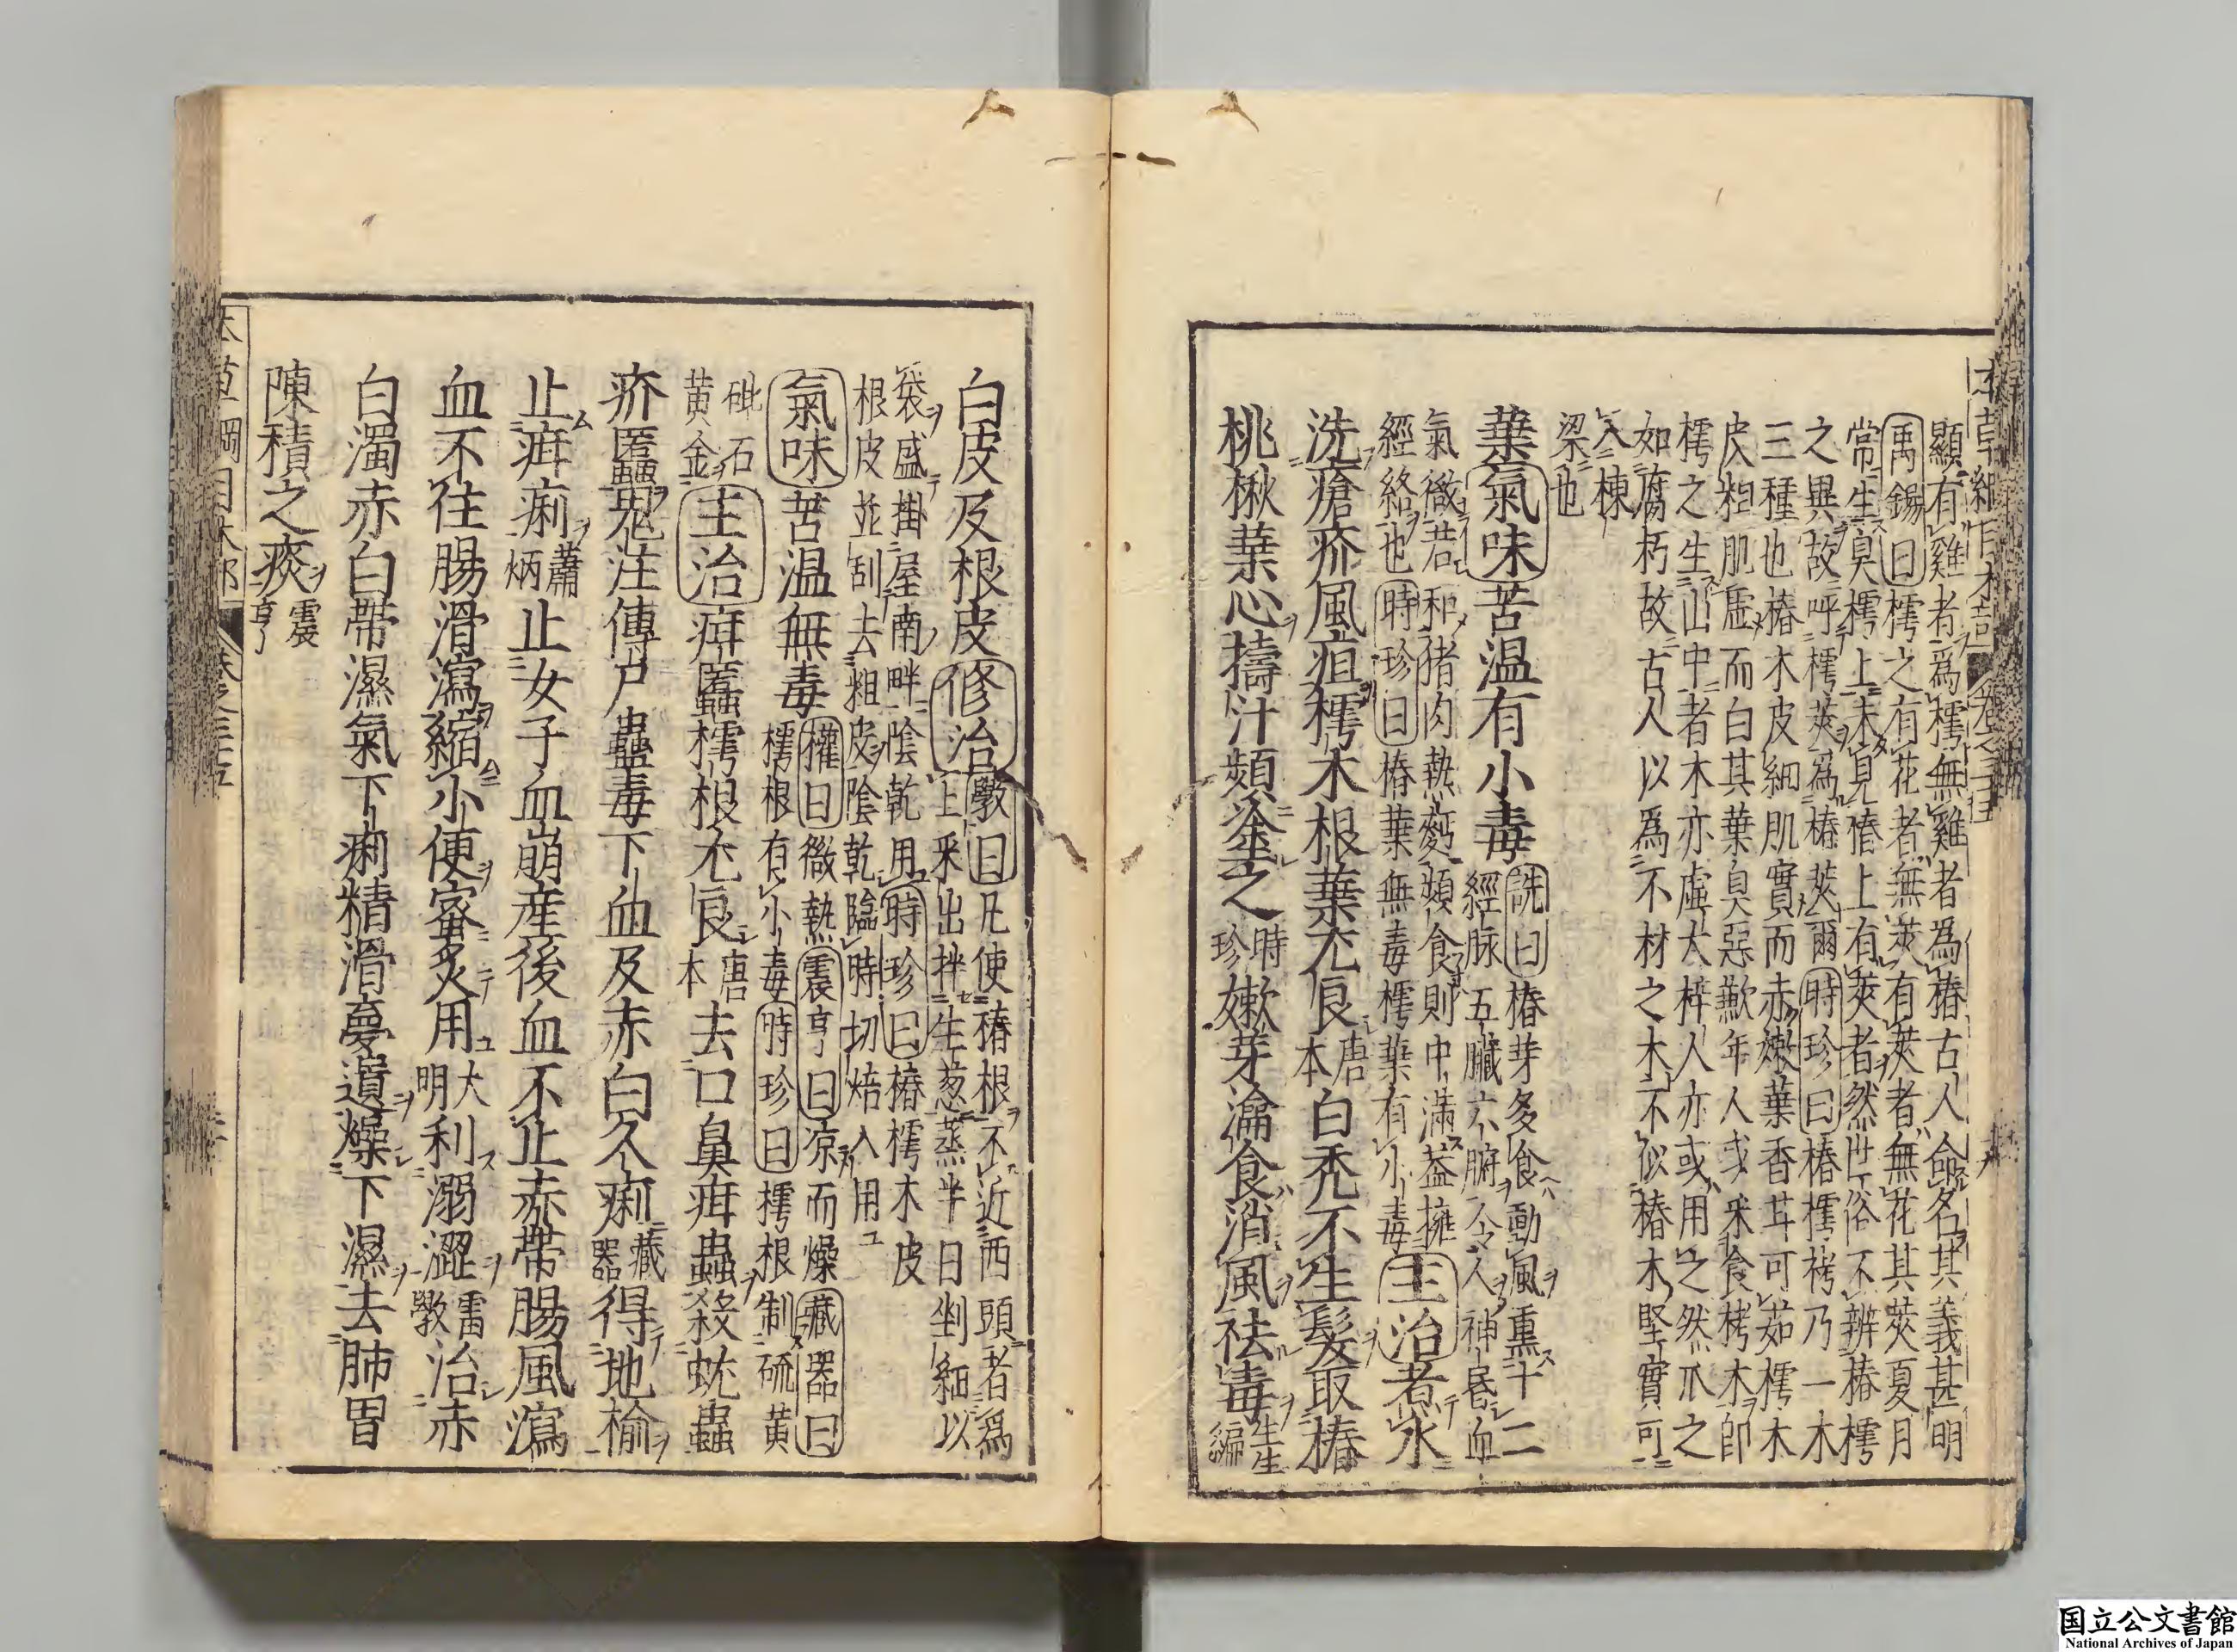 顯有雞者爲樗無雞者爲椿古人命名其義甚明
禹錫曰樗之有花者無莢有莢者無花其莢夏月
常生臭樗上未見椿上有莢者然世俗不辨椿樗
之異故呼樗莢爲椿莢爾時珍曰椿樗栲乃一木
三種也椿木皮細肌實而赤嫩葉香甘可茹樗木
皮粗肌虛而白其葉臭惡歉年人或采食栲木卽
樗之生山中者木亦虛大梓人亦或用之然爪之
如腐朽故古人以爲不材之木不似椿木堅實可
入棟
梁也
葉氣味苦温有小毒詵曰椿芽多食動風熏十二
經脉五臟六腑令人神昏血
氣微若和猪肉熱麪頻食則中滿葢擁
經絡也時珍曰椿葉無毒樗葉有小毒主治煮水
洗瘡疥風疽樗木根葉尤良唐本白禿不生髮取椿
桃楸葉心擣汁頻塗之時珍嫩芽瀹食消風祛毒生生編
白皮及根皮修治斅曰凡使椿根不近西頭者爲
上采出拌生葱蒸半日剉細以
袋盛掛屋南畔陰乾用時珍曰椿樗木皮
根皮並刮去粗皮陰乾臨時切焙入用
氣味苦温無毒權曰微熱震亨曰凉而燥藏器曰
樗根有小毒時珍曰樗根制硫黃
砒石
黃金主治疳䘌樗根尤良唐本去口鼻疳蟲殺蚘蟲
疥䘌鬼注傳尸蠱毒下血及赤白久痢藏器得地榆
止疳痢蕭炳止女子血崩産後血不止赤帶腸風瀉
血不住腸滑瀉縮小便蜜炙用大明利溺澀雷斅治赤
白濁赤白帶濕氣下痢精滑夢遺燥下濕去肺胃
陳積之痰震亨
本草綱目木部 卷之三十五
国立公文書館
National Archives of Japan